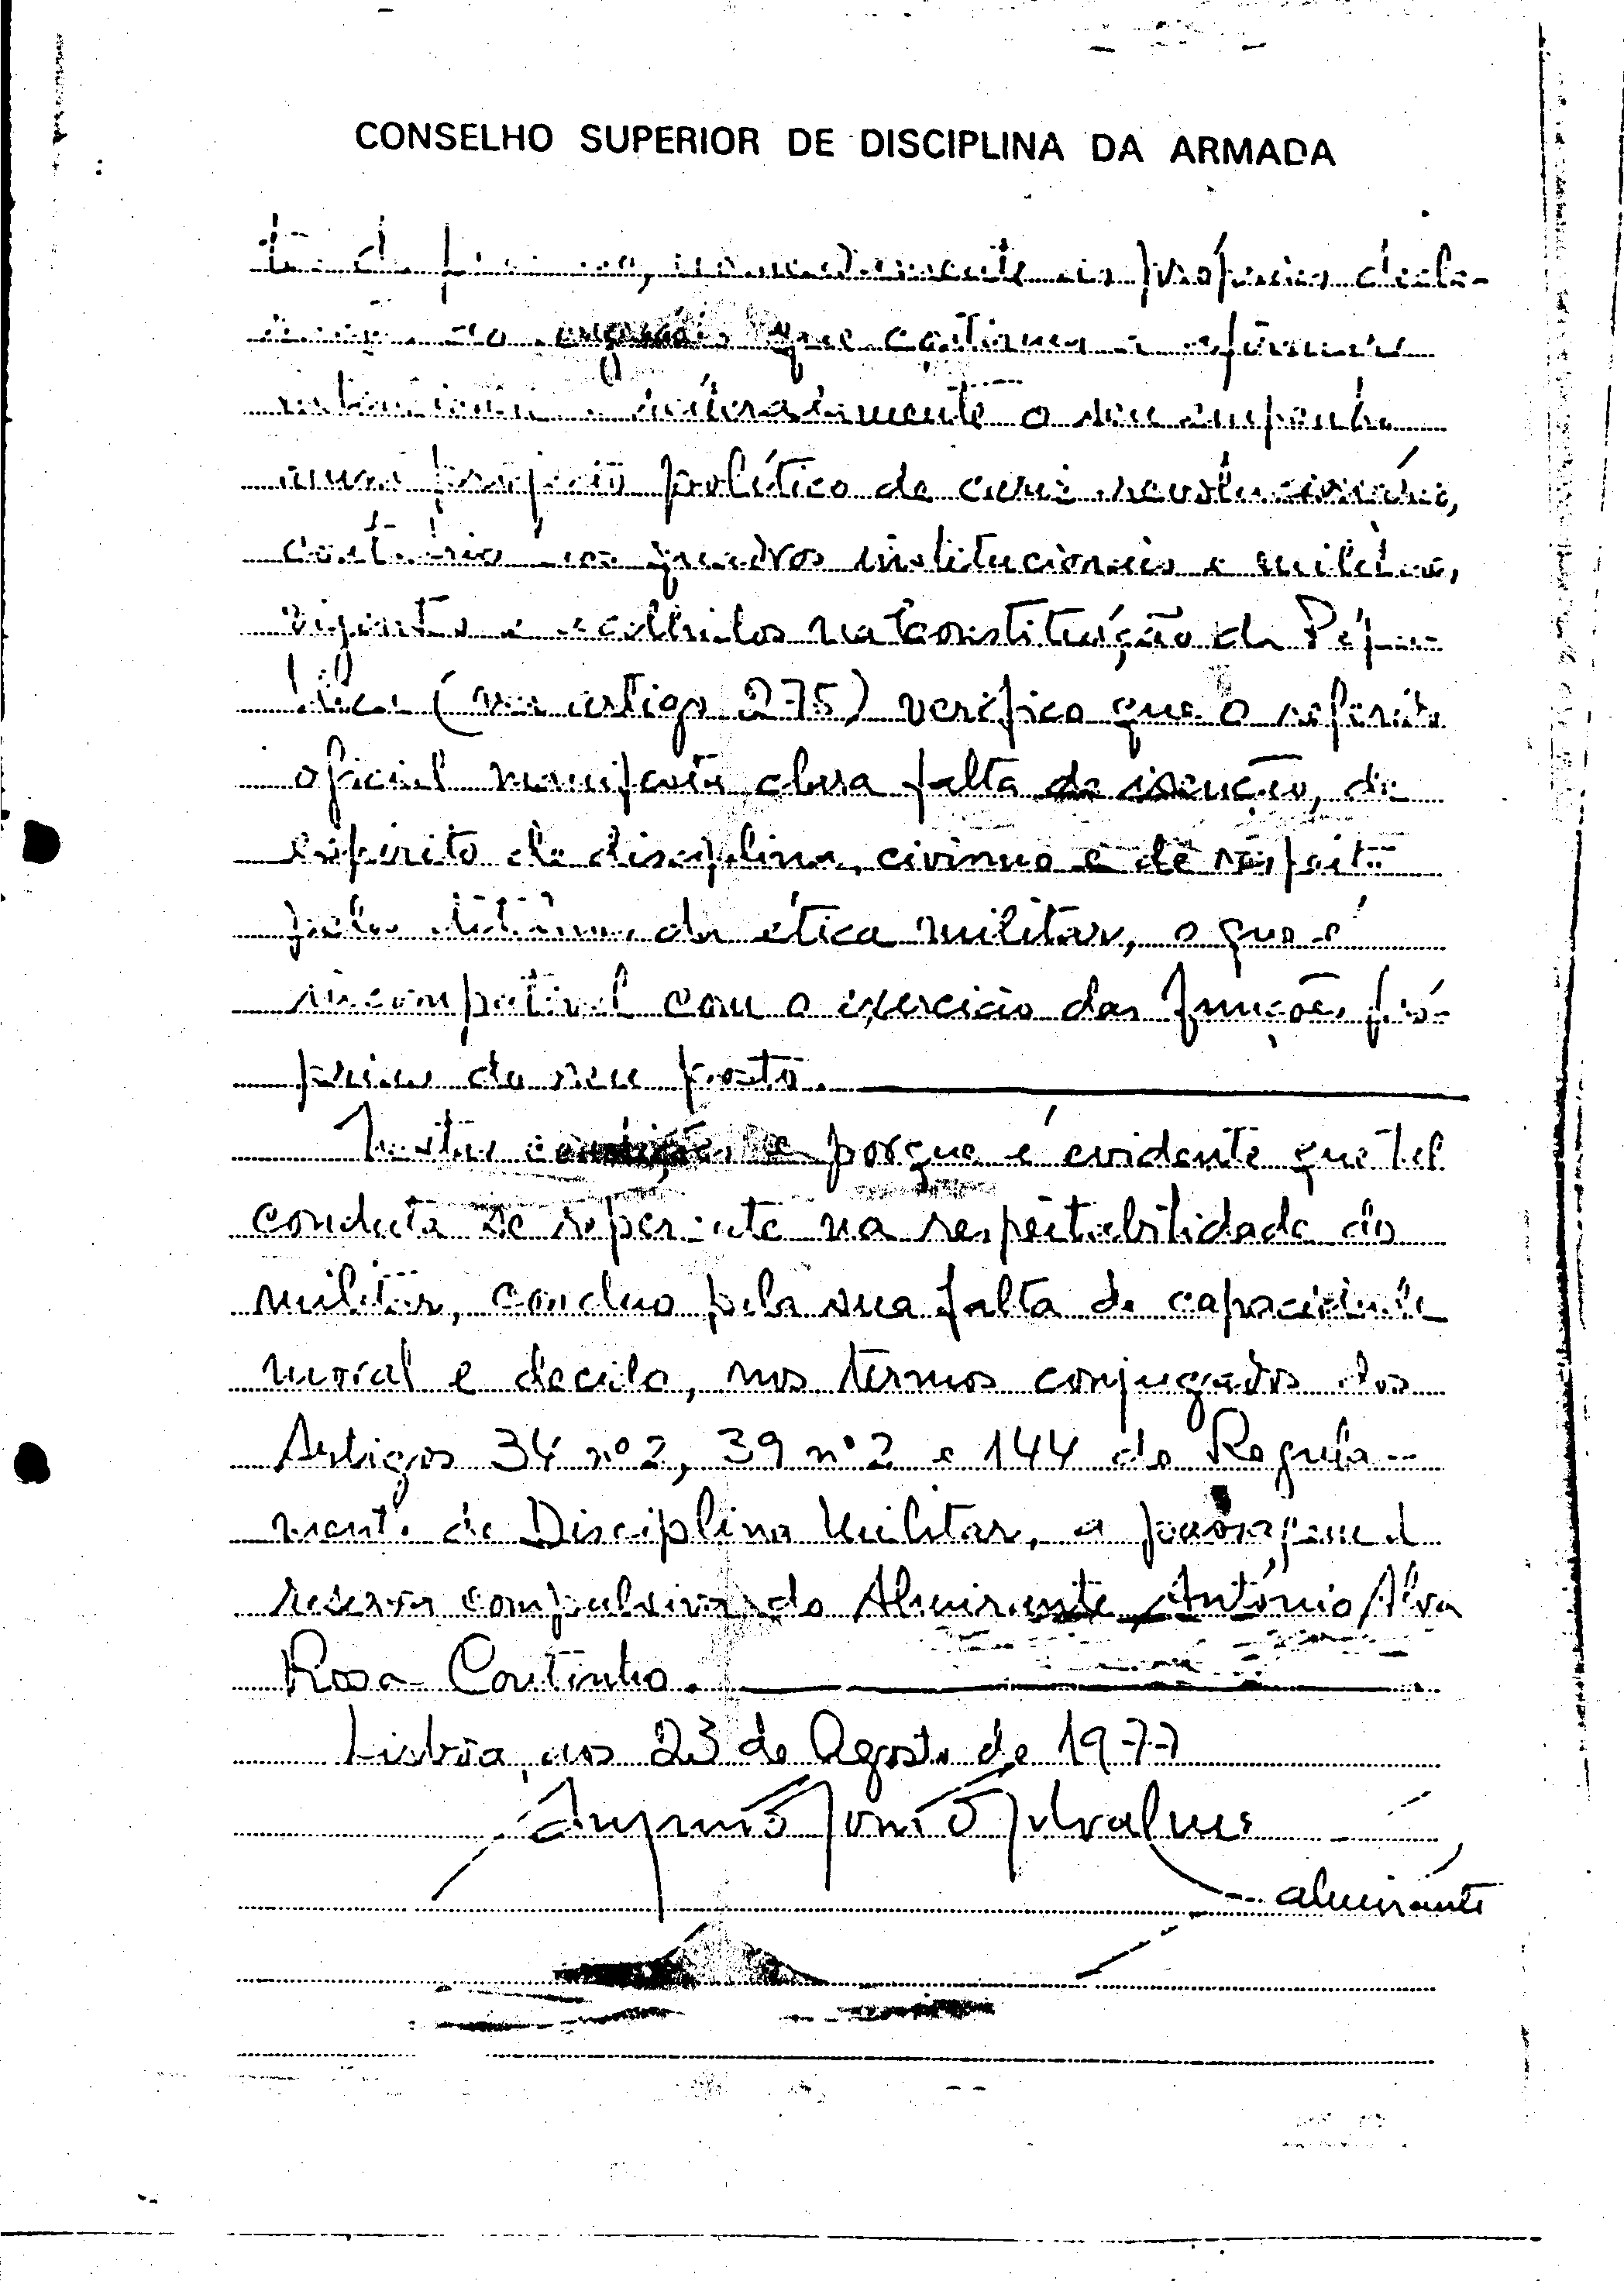 CONSELHO SUPERIOR DE DISCIPLINA DA ARMADA
nomeadamente as próprias decla-
que continua a afirmar
o seu empenho
num projecto político de cariz revolucionário,
contrário aos quadros institucionais e militares,
vigentes e acolhidos na Constituição da Repú-
blica (seu artigo 275) verifico que o referido
oficial manifesta clara falta de isenção, de
espírito de disciplina, civismo e de respeito
pelos ditames da ética militar, o que é
incompatível com o exercício das funções pró-
prias do seu posto.
Nestas condições e porque é evidente que tal
conduta se repercute na respeitabilidade do
militar, concluo pela sua falta de capacidade
moral e decido, nos termos conjugados dos
Artigos 34 nº 2, 39 nº 2 e 144 do Regula-
mento de Disciplina Militar, a passagem à
reserva compulsiva do Almirante António Alva
Rosa Coutinho.
Lisboa, aos 23 de Agosto de 1977
almirante